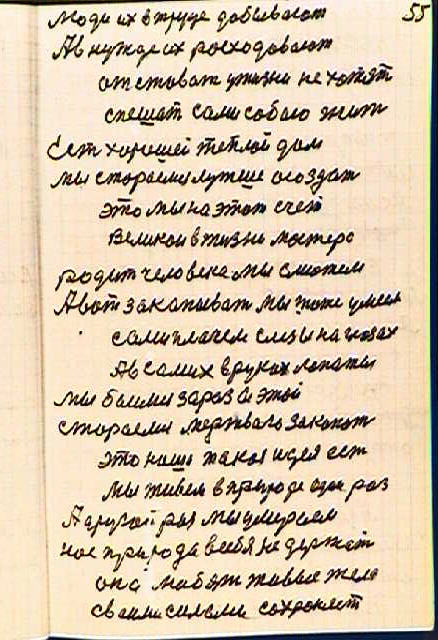 55
Люди их в труде добывают
А в нужде их росходовают
отстоват ужизни не хотят
спешат сами собою жит
Ест хорошей теплой дом
мы стораемся лутше создат
это мы на этот счет
Великои в жизни мастера
родит человека мы сможем
А вот закапыват мы тоже умеем
сами плачем слезы на глазах
А в самих в руках лопаты
мы боимся зараза этой
стораемся мертвого закопат
это наша такая идея ест
мы живем в природе один раз
А другой раз мы умираем
нас природа в себя не держат
она любят живые тела
своими силами сохронят